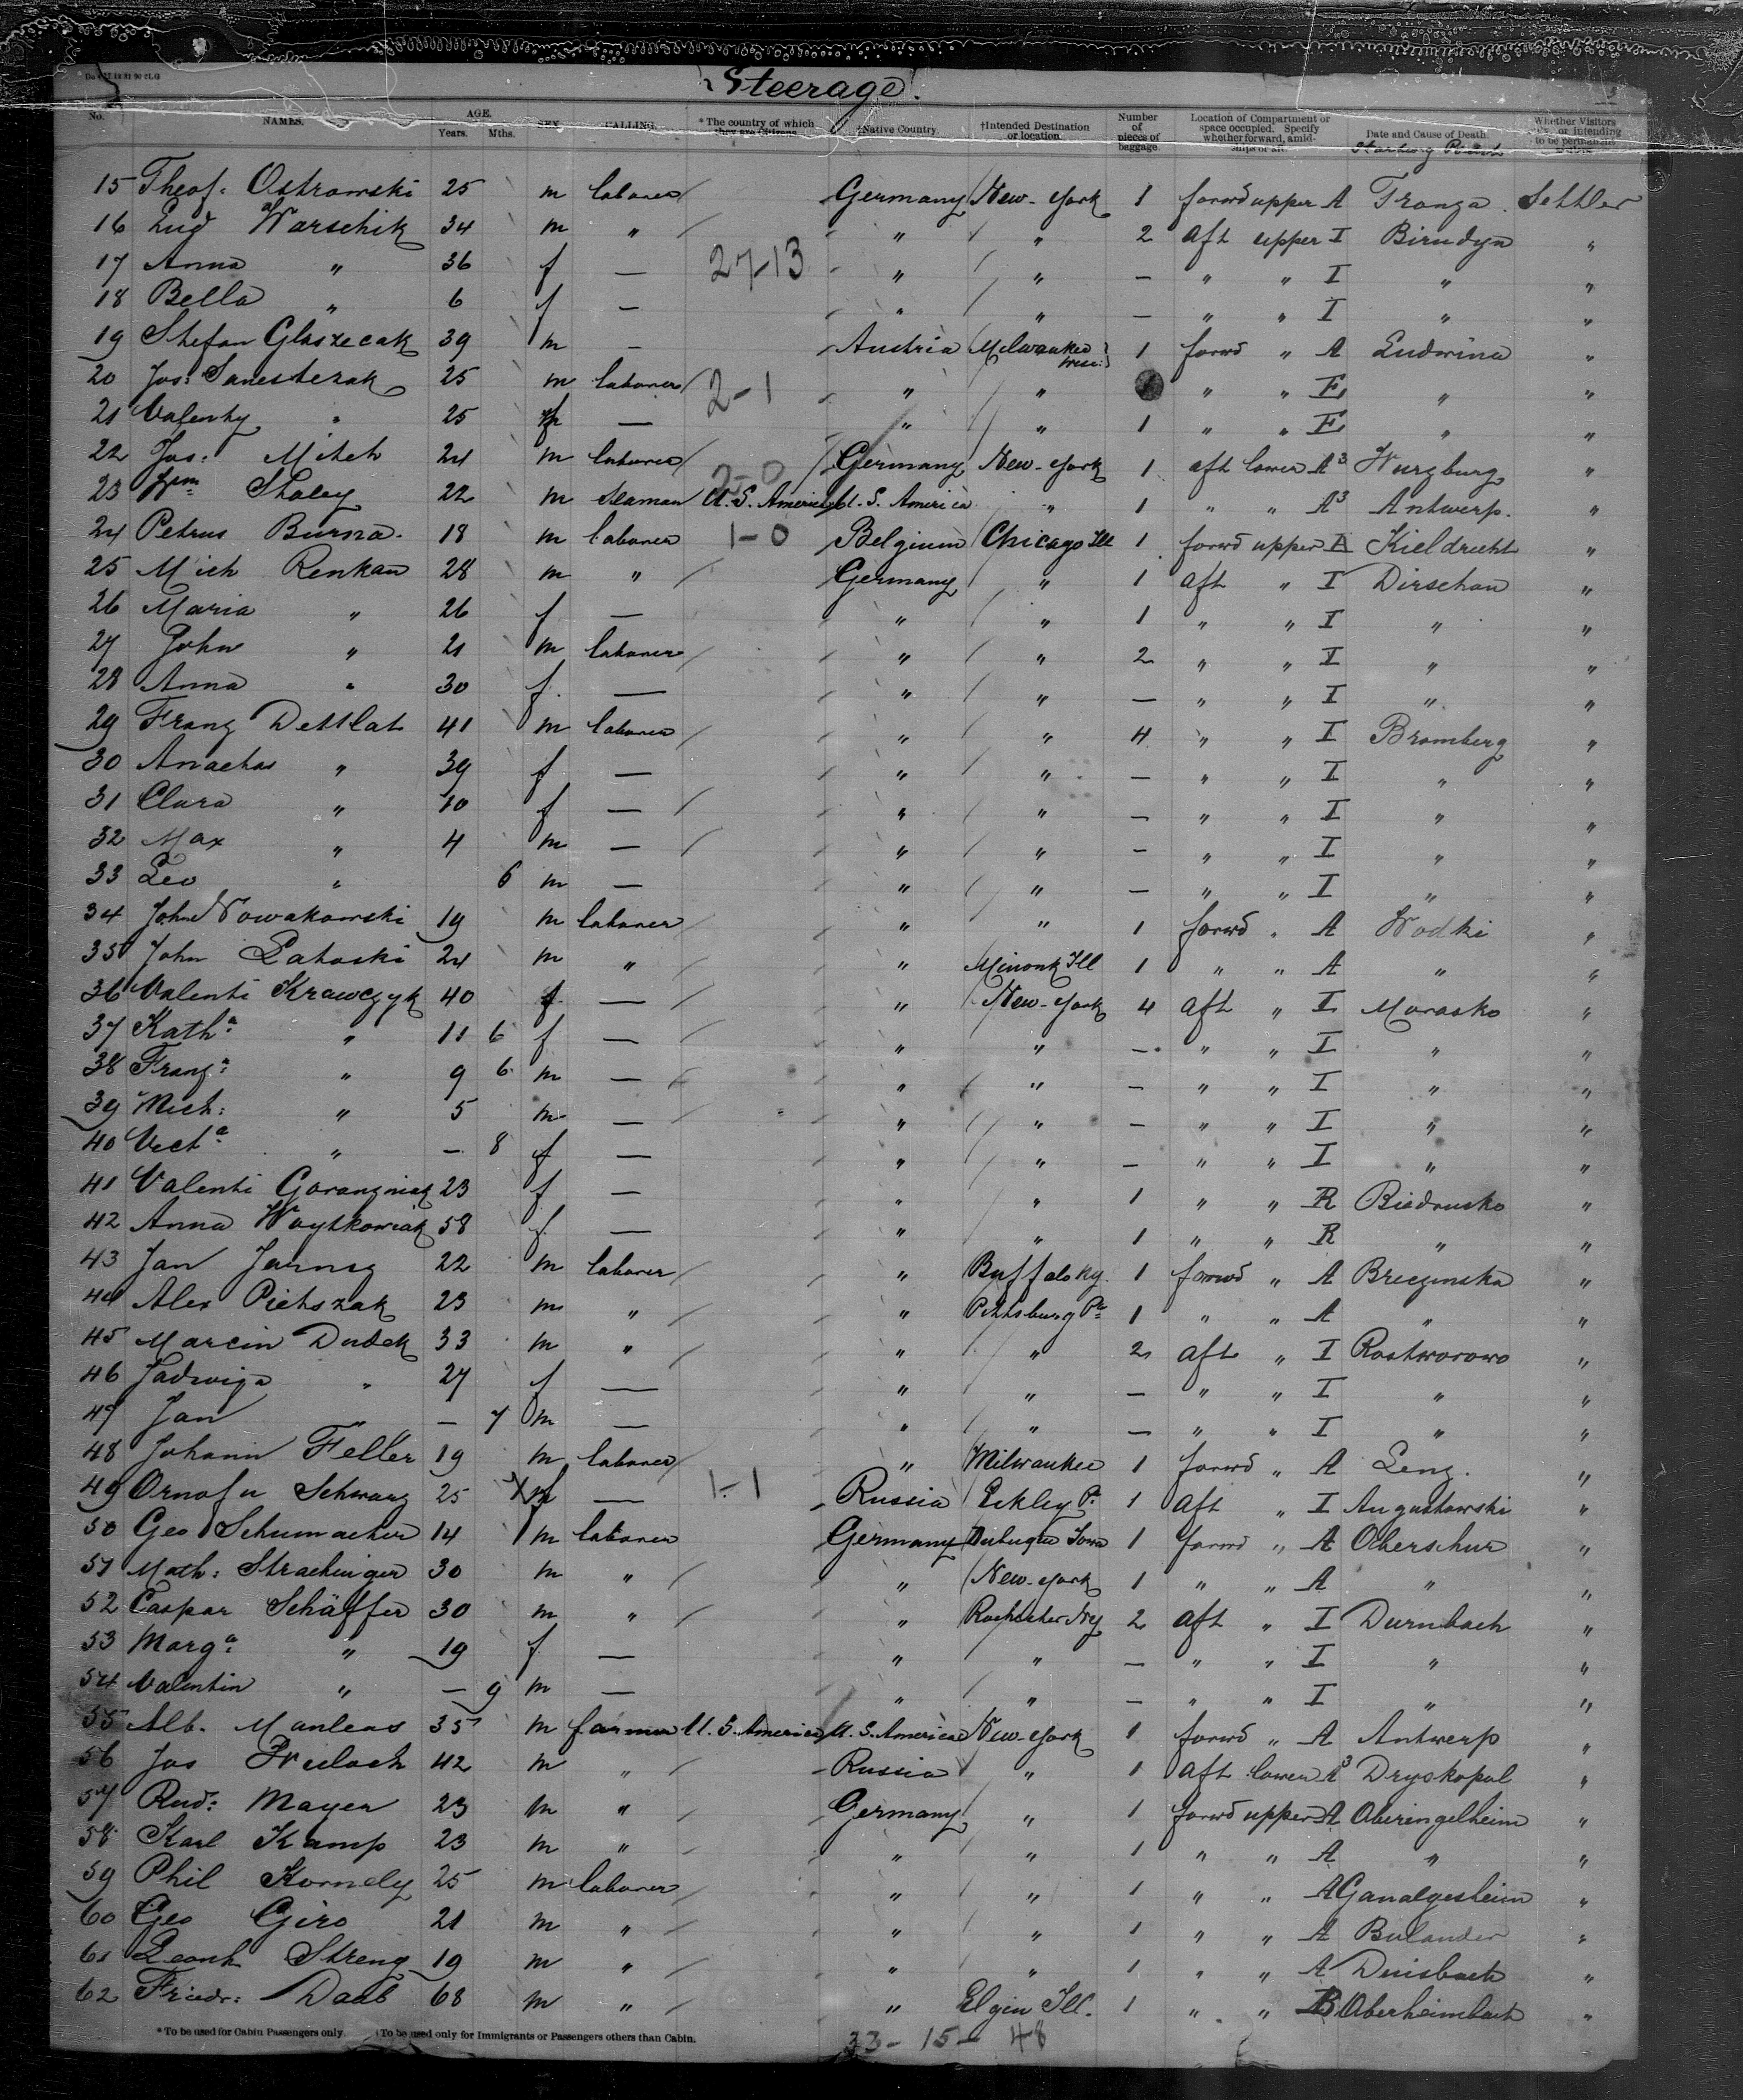 Steerage.
No. NAMES. AGE. Years. Mths. SEX. CALLING. * The country of which they are Citizens †Native Country. †Intended Destination or location. Number of pieces of baggage. Location of Compartment or space occupied. Specify whether forward, amidships or aft. Date and Cause of Death. Starting Point Whether Visitors or intending to be permanent
15 Theof: Ostrowski 25 m laborer Germany New-York 1 forwd upper A Tronza Settler
16 Lud Warschik 34 m " " " 2 aft upper I Birndyn "
27-13
17 Anna " 36 f — " " — " " I " "
18 Bella " 6 f — " " — " " I " "
19 Stefan Glaszecak 39 m — Austria Milwaukee Wisc: 1 forwd " A Ludwina "
20 Jos: Sanesterak 25 m laborer 2-1 " " " " E " "
21 Valenty " 25 f — " " 1 " " E " "
22 Jos: Mitch 24 m laborer 2-0 Germany New-York 1 aft lower A3 Wurzburg "
23 Wm Staley 22 m seaman U.S. America U.S. America " 1 " " A3 Antwerp. "
24 Petrus Bursza 18 m laborer 1-0 Belgium Chicago Ill 1 forwd upper A Kieldrecht "
25 Mich Renkan 28 m " Germany " 1 aft " I Dirschau "
26 Maria " 26 f — " " 1 " " I " "
27 John " 21 m laborer " " 2 " " I " "
28 Anna " 30 f. — " " — " " I " "
29 Franz Dettlat 41 m laborer " " 4 " " I Bromberg "
30 Anachas " 39 f — " " — " " I " "
31 Clara " 10 f — " " — " " I " "
32 Max " 4 m — " " — " " I " "
33 Leo " 6 m — " " — " " I " "
34 John Nowakowski 19 m laborer " " 1 forwd " A Wodki "
35 John Latoski 24 m " " Minonk Ill 1 " " A " "
36 Valenti Krawczyk 40 f — " New-York 4 aft " I Morasko "
37 Katha: " 11 6 f — " " — " " I " "
38 Franz: " 9 6 m — " " — " " I " "
39 Mich: " 5 m — " " — " " I " "
40 Vecta " — 8 f — " " — " " I " "
41 Valenti Goranzniak 23 f — " " 1 " " R Biedrusko "
42 Anna Woytkowiak 58 f — " " 1 " " R " "
43 Jan Jarnsz 22 m laborer " Buffalo ny. 1 forwd " A Breczinska "
44 Alex Pietszak 23 m " " Pittsburg Pa 1 " " A " "
45 Marcin Dudek 33 m " " " 2 aft " I Rostworowo "
46 Jadwiga " 27 f — " " — " " I " "
47 Jan " — 7 m — " " — " " I " "
48 Johann Feller 19 m laborer " Milwaukee 1 forwd " A Leng. "
49 Ornofu Schwarz 25 f — 1-1 Russia Eckley Pa 1 aft " I Augustowski "
50 Geo Schumacher 14 m laborer Germany Dubuque Iowa 1 forwd " A Oberschur "
51 Math: Strachinger 30 m " " New-York 1 " " A " "
52 Caspar Schäffer 30 m " " Rochester Ny 2 aft " I Durnbach "
53 Marga: " 19 f — " " — " " I " "
54 Valentin " — 9 m — " " — " " I " "
55 Alb. Manleas 35 m farmer U.S. America U.S. America New-York 1 forwd " A Antwerp "
56 Jos Freilach 42 m " Russia " 1 aft lower A3 Dryskopol "
57 Rud: Mayer 23 m " Germany " 1 forwd upper A Oberingelheim "
58 Karl Kamp 23 m " " " 1 " " A " "
59 Phil Kornely 25 m laborer " " 1 " " A Ganalgesheim "
60 Geo Giro 21 m " " " 1 " " A Bulander "
61 Leonh Streng 19 m " " " 1 " " A Duisbach "
62 Friedr: Daab 68 m " " Elgin Ill. 1 " " B Oberheimbach "
* To be used for Cabin Passengers only. †To be used only for Immigrants or Passengers others than Cabin.
33 - 15 - 48